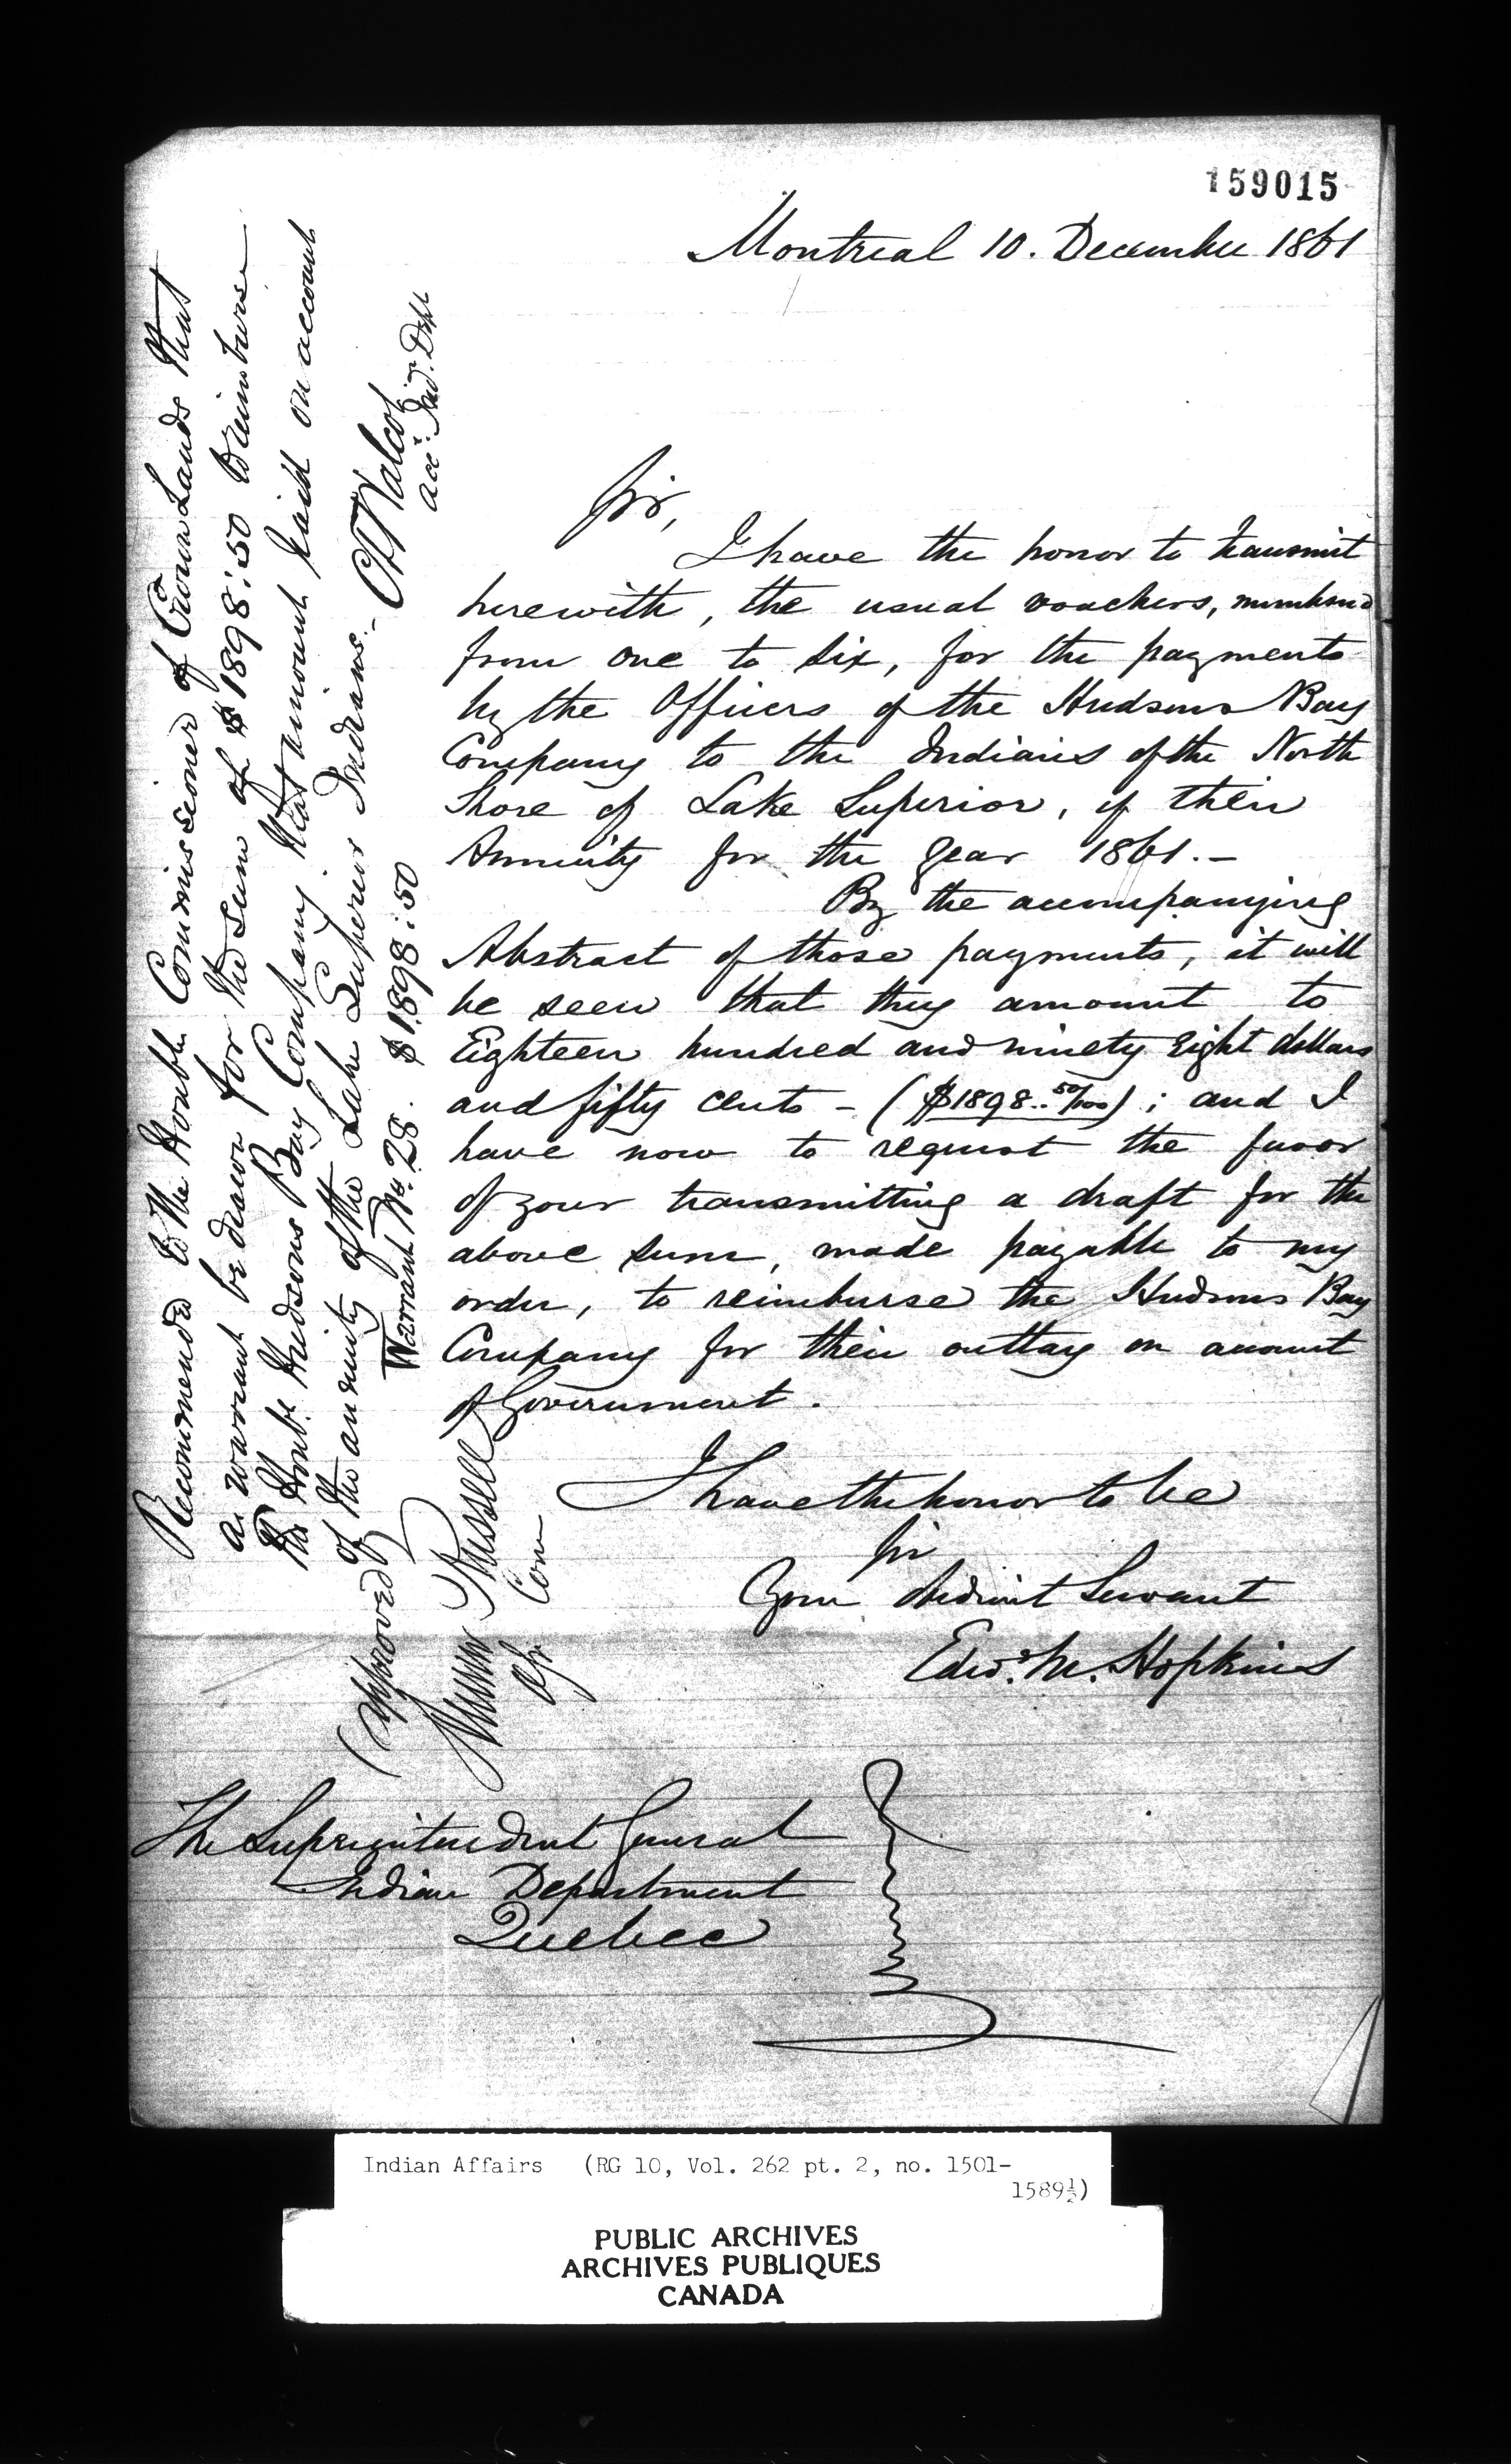 159015
Montreal 10. December 1861
Sir,
I have the honor to transmit
herewith, the usual vouchers, numbered
from one to six, for the payments
by the Officers of the Hudsons Bay
Company to the Indians of the North
Shore of Lake Superior, of their
Annuity for the year 1861.-
By the accompanying
Abstract of those payments, it will
be seen that they amount to
Eighteen hundred and ninety Eight dollars
and fifty cents - ($1898..50/100); and I
have now to request the favor
of your transmitting a draft for the
above sum, made payable to my
order, to reimburse the Hudsons Bay
Company for their outlay on account
of Government.
I have the honor to be
Sir
Your obedient Servant
Edwd. M. Hopkins
The Superintendent General
Indian Department
Quebec
Recommended to the Honble Commissioner of Crown Lands that
a warrant be drawn for the sum of $1898:50 to reimburse
the Honble Hudsons Bay Company that amount paid on account
of the annuity of the Lake Superior Indians.-
C T Walcot
Acct. Ind. Dept
Warrant No. 28. $1898:50
(Approved)
Andrew Russell
Asst Com
Indian Affairs (RG 10, Vol. 262 pt. 2, no. 1501-
1589½)
PUBLIC ARCHIVES
ARCHIVES PUBLIQUES
CANADA